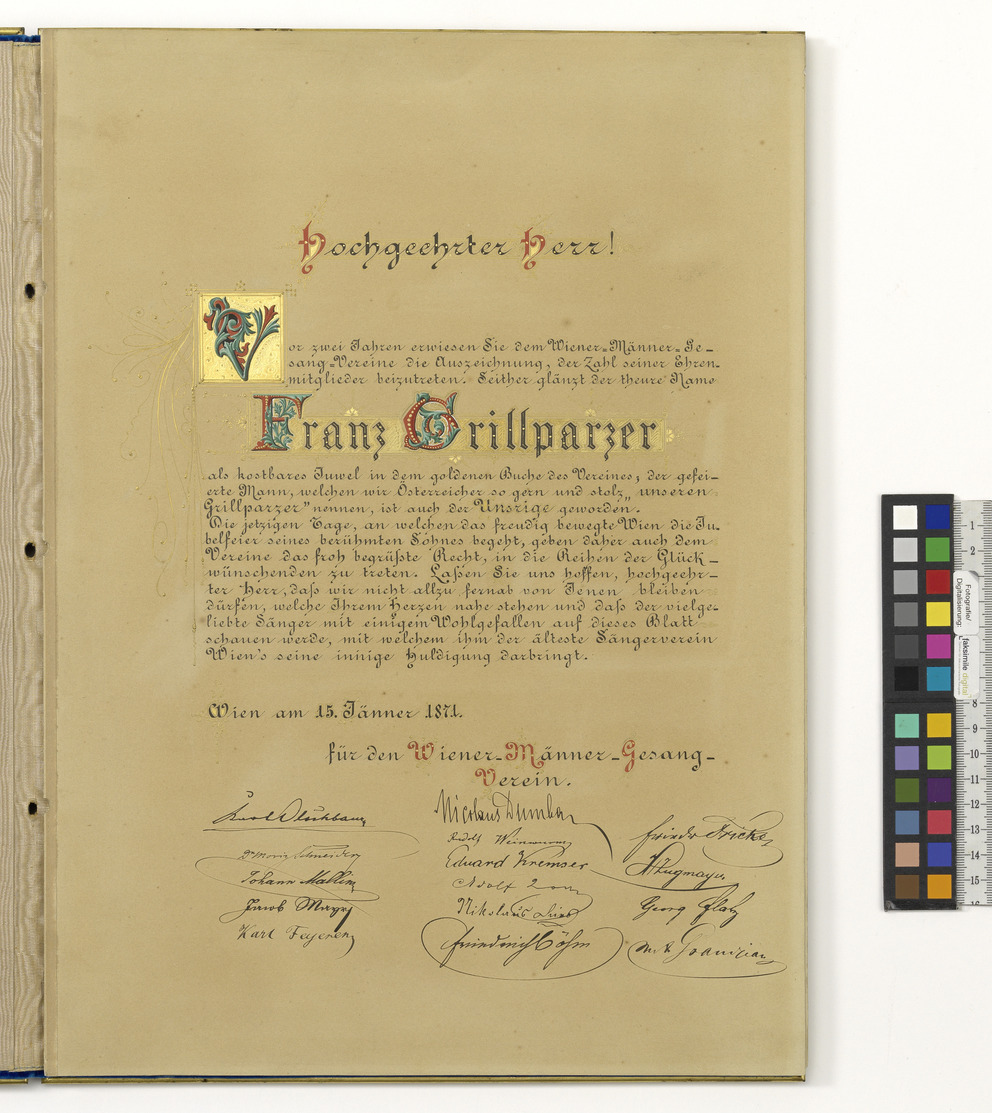 Hochgeehrter Herr!
Vor zwei Jahren erwiesen Sie dem Wiener-Männer-Ge-
sang-Vereine die Auszeichnung, der Zahl seiner Ehren-
mitglieder beizutreten. Seither glänzt der theure Name
Franz Grillparzer
als kostbares Juwel in dem goldenen Buche des Vereines; der gefei-
erte Mann, welchen wir Österreicher so gern und stolz „unseren
Grillparzer" nennen, ist auch der Unsrige geworden.
Die jetzigen Tage, an welchen das freudig bewegte Wien die Ju-
belfeier seines berühmten Sohnes begeht, geben daher auch dem
Vereine das froh begrüßte Recht, in die Reihen der Glück-
wünschenden zu treten. Laßen Sie uns hoffen, hochgeehr-
ter Herr, daß wir nicht allzu fernab von Jenen bleiben
dürfen, welche Ihrem Herzen nahe stehen und daß der vielge-
liebte Sänger mit einigem Wohlgefallen auf dieses Blatt
schauen werde, mit welchem ihm der älteste Sängerverein
Wien's seine innige Huldigung darbringt.
Wien am 15. Jänner 1871.
für den Wiener-Männer-Gesang-
Verein.
Nicolaus Dumba
Karl
Friedr Fricke
Rudolf Weinwurm
Dr Moriz Schneider
Eduard Kremser
Johann
Adolf
Jacob Mayr
Nikolaus
Georg
Karl
Friedrich Böhm
Fotografie/
Digitalisierung:
faksimile digital
1
2
8
9
10
11
12
13
14
15